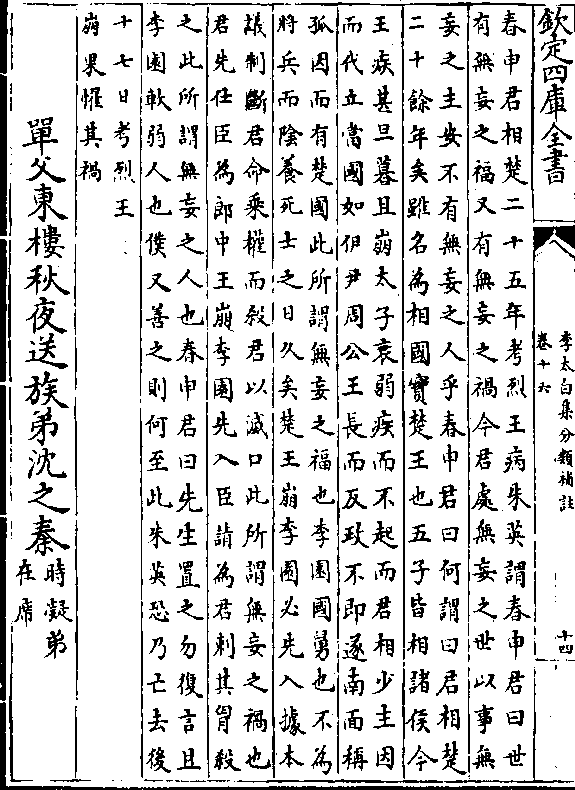 欽定四庫全書
李太白集分類補註
卷十六
十四
春申君相楚二十五年考烈王病朱英謂春申君曰世
有無妄之福又有無妄之禍今君處無妄之世以事無
妄之主安不有無妄之人乎春申君曰何謂曰君相楚
二十餘年矣雖名為相國實楚王也五子皆相諸侯今
王疾甚旦暮且崩太子衰弱疾而不起而君相少主因
而代立當國如伊尹周公王長而反政不即遂南面稱
孤因而有楚國此所謂無妄之福也李園國舅也不為
將兵而陰養死士之日久矣楚王崩李園必先入據本
議制斷君命乘權而殺君以滅口此所謂無妄之禍也
君先仕臣為郎中王崩李園先入臣請為君刺其胷殺
之此所謂無妄之人也春申君曰先生置之勿復言且
李園軟弱人也僕又善之則何至此朱英恐乃亡去後
十七日考烈王
崩果惟其禍
單父東樓秋夜送族弟沈之秦時凝弟在席